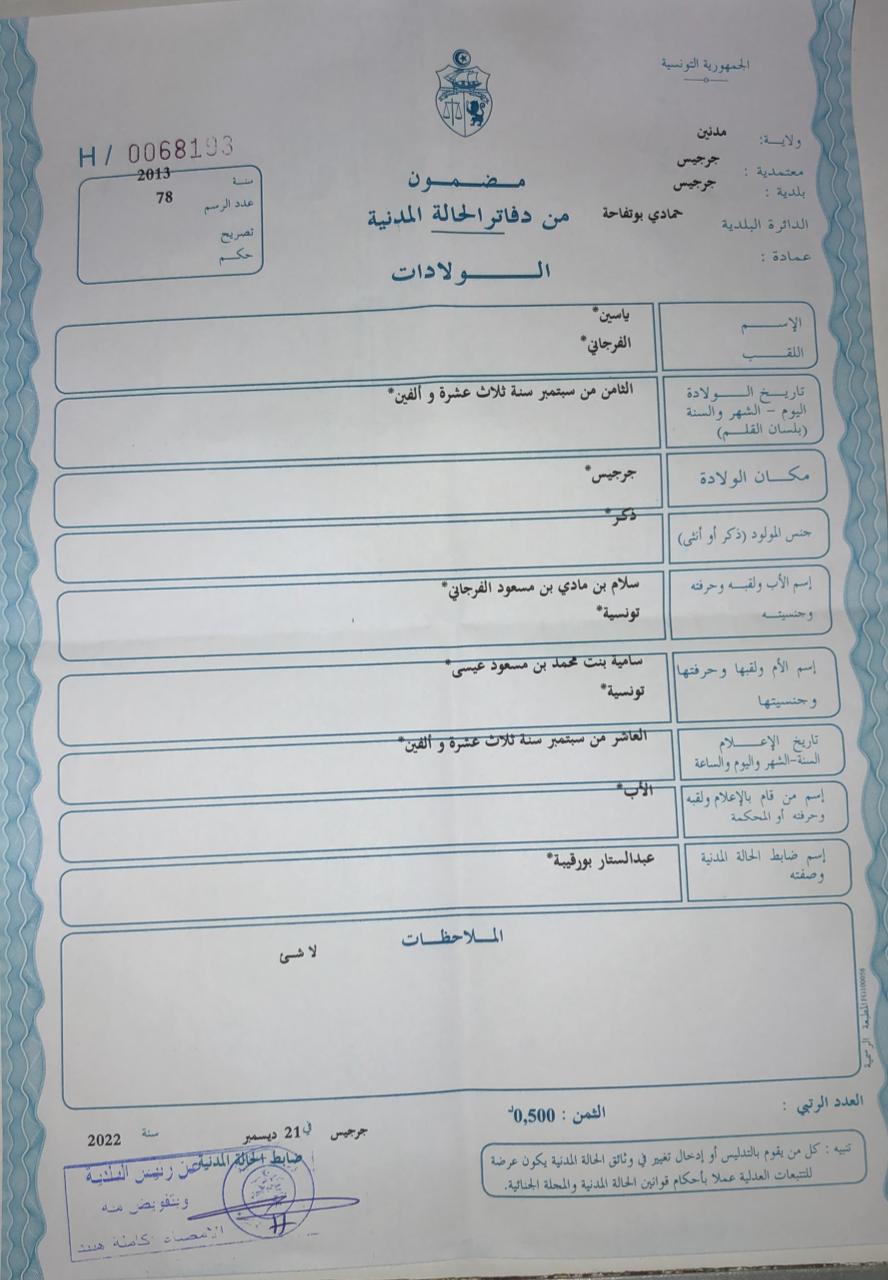 الجمهورية التونسية
ولاية: مدنين
معتمدية : جرجيس
بلدية : جرجيس
الدائرة البلدية حمادي بوتفاحة
عمادة :
H / 0068193
سنة 2013
عدد الرسم 78
تصريح
حكم
مضمون
من دفاتر الحالة المدنية
الولادات
الإسم ياسين*
اللقب الفرجاني*
تاريخ الولادة الثامن من سبتمبر سنة ثلاث عشرة و ألفين*
اليوم - الشهر والسنة
(بلسان القلم)
مكان الولادة جرجيس*
جنس المولود (ذكر أو أنثى) ذكر*
إسم الأب ولقبه وحرفته سلام بن مادي بن مسعود الفرجاني*
وجنسيته تونسية*
إسم الأم ولقبها وحرفتها سامية بنت محمد بن مسعود عيسى*
وجنسيتها تونسية*
تاريخ الإعلام العاشر من سبتمبر سنة ثلاث عشرة و ألفين*
السنة-الشهر واليوم والساعة
إسم من قام بالإعلام ولقبه الأب*
وحرفته أو المحكمة
إسم ضابط الحالة المدنية عبدالستار بورقيبة*
وصفته
الملاحظات
لا شئ
المطبعة الرسمية
العدد الرتبي :
الثمن : 0,500د
تنبيه : كل من يقوم بالتدليس أو إدخال تغيير في وثائق الحالة المدنية يكون عرضة
للتتبعات العدلية عملا بأحكام قوانين الحالة المدنية والمجلة الجنائية.
جرجيس في 21 ديسمبر سنة 2022
ضابط الحالة المدنية
عن رئيس البلدية
وبتفويض منه